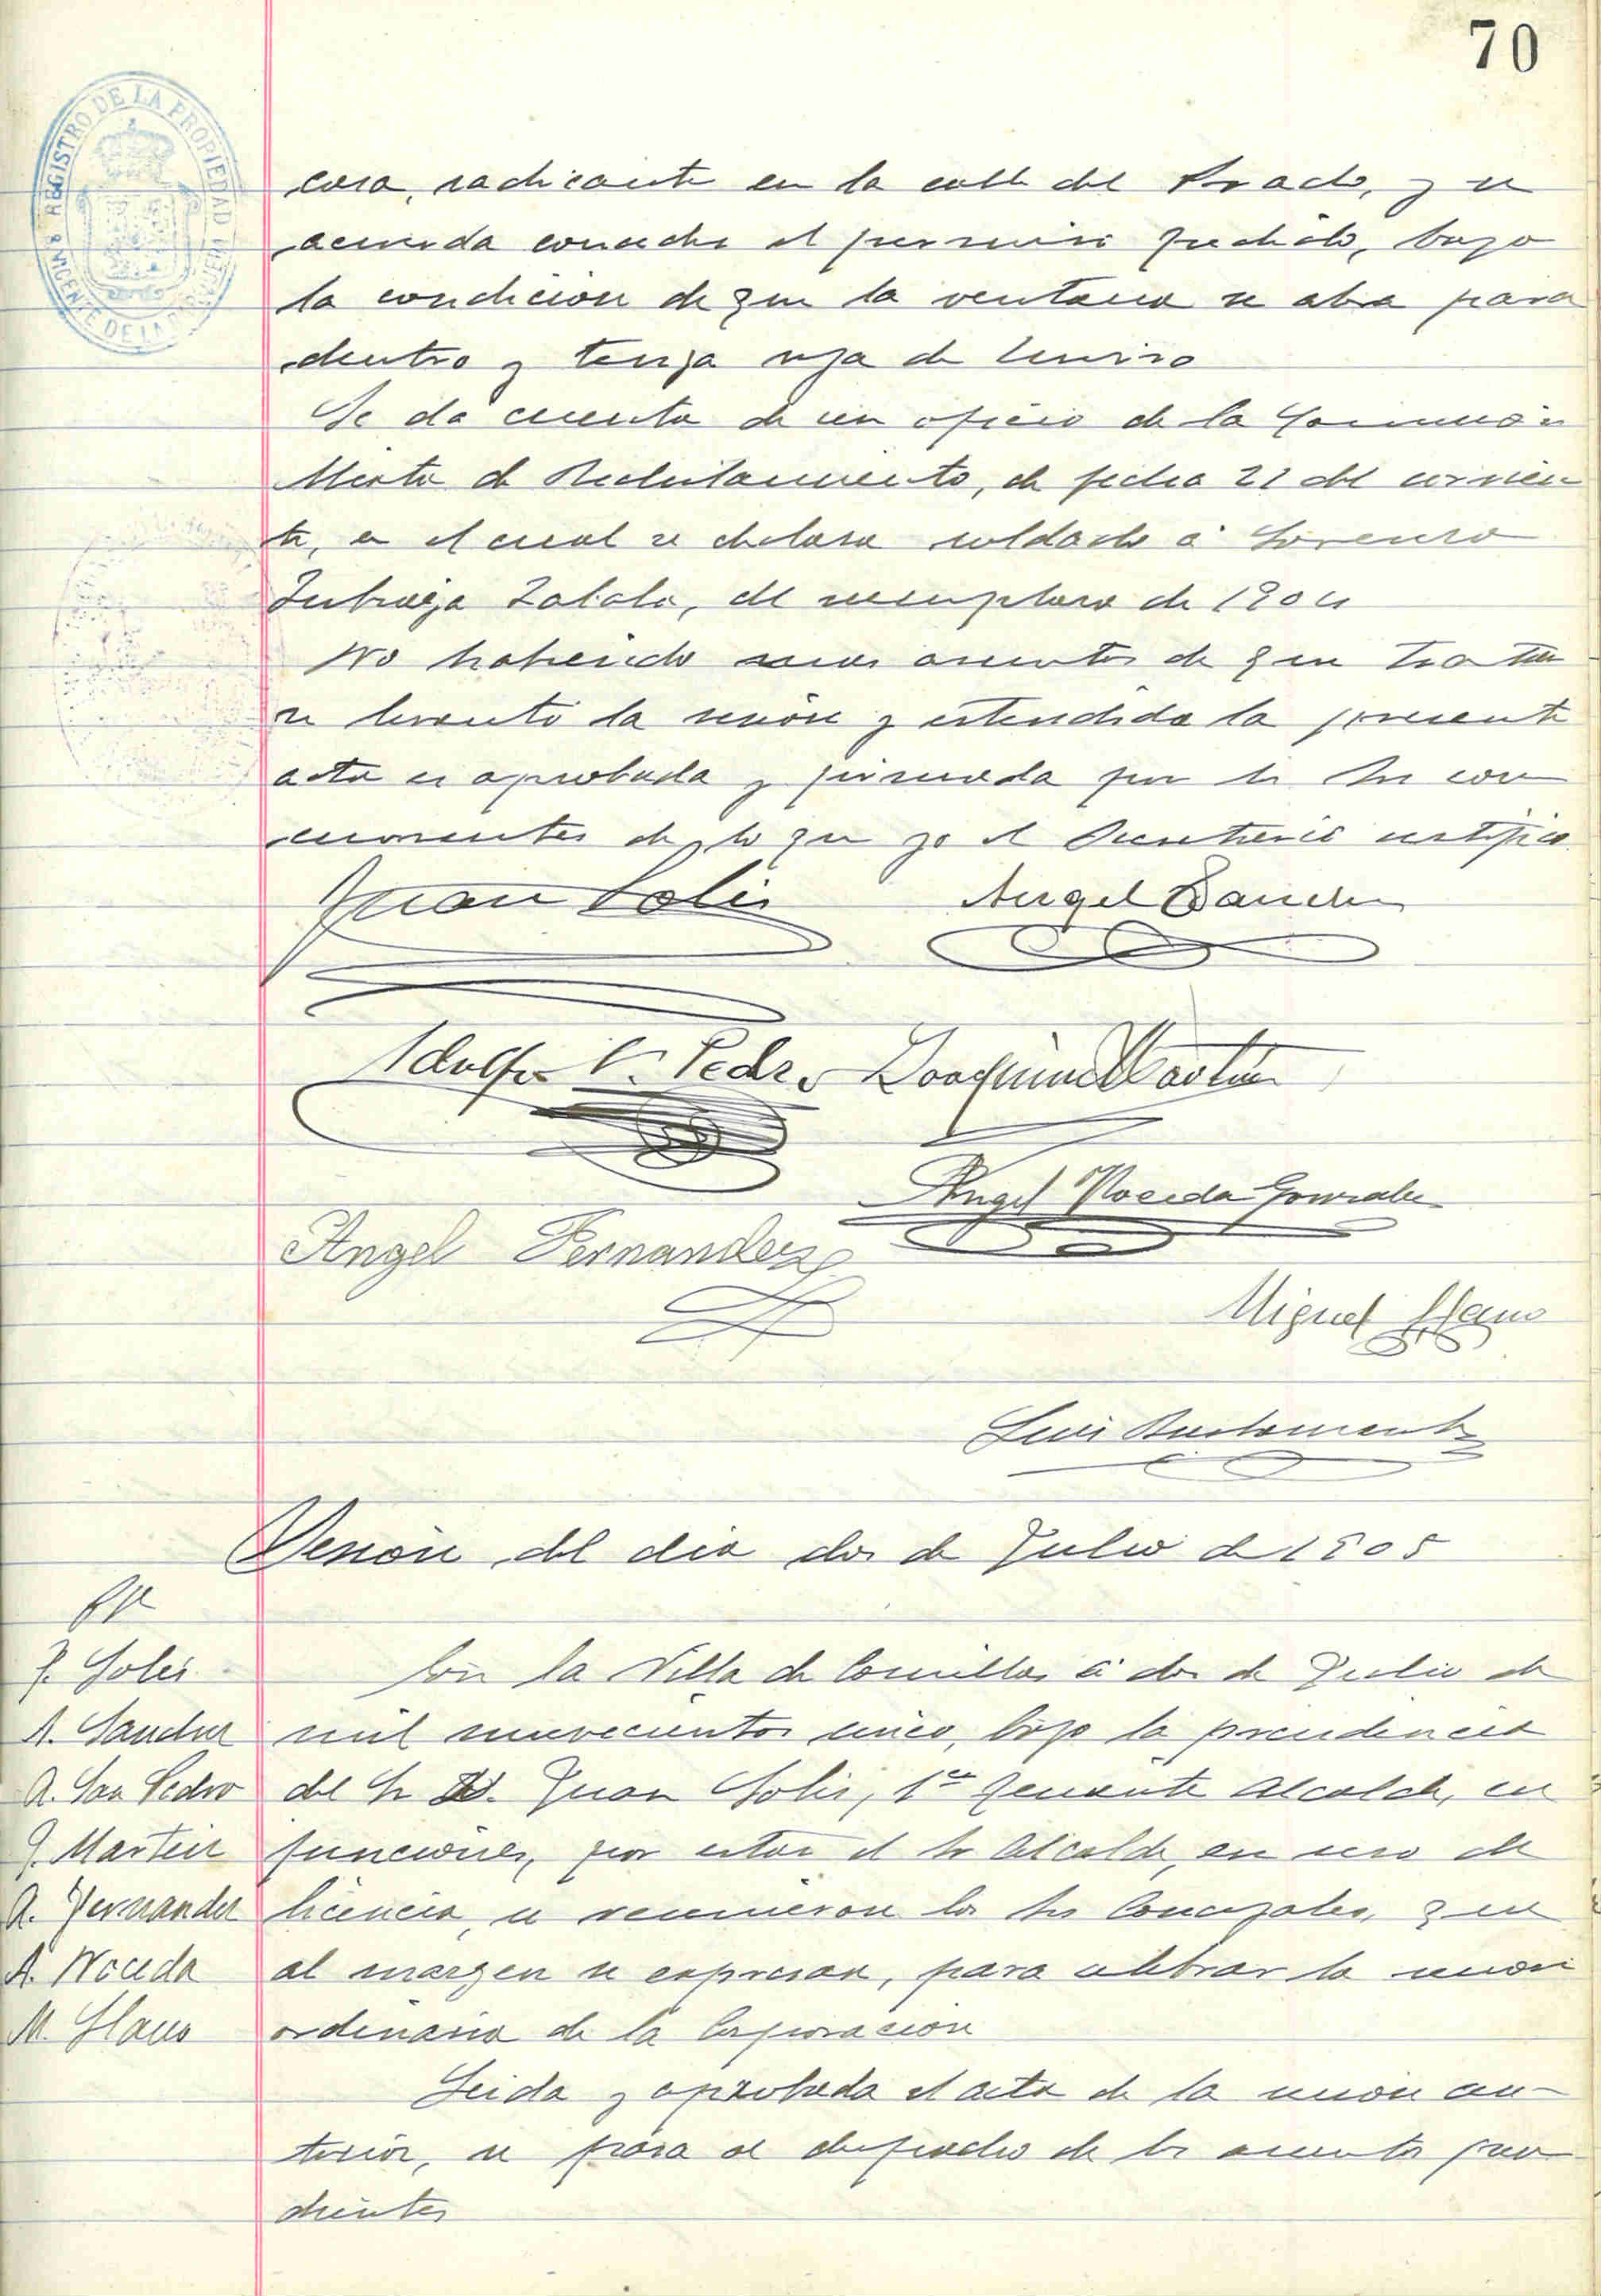 70
REGISTRO DE LA PROPIEDAD
S. VICENTE DE LA BARQUERA
casa, radicante en la calle del Prado, y se
acuerda conceder el permiso pedido, bajo
la condicion de que la ventana se abra para
dentro y tenga reja de hierro
Se da cuenta de un oficio de la Comision
Mixta de Reclutamiento, de fecha 21 del corrien
te, en el cual se declara soldado á Lorenzo
Zabala, del reemplazo de 1904
No habiendo mas asuntos de que tratar
se levantó la sesión y estendida la presente
acta es aprobada y firmada por los Sres con
currentes de lo que yo el Secretario certifico
Juan Solis Angel Sanchez
Adolfo S. Pedro Joaquin Martin
Angel Noceda Gonzalez
Angel Fernandez
Miguel Llano
Luis Bustamante
Sesión del dia dos de Julio de 1905
J. Solis
A. Sanchez
A. San Pedro
J. Martin
A. Fernandez
A. Noceda
M. Llano
En la Villa de Comillas á dos de Julio de
mil novecientos cinco, bajo la presidencia
del Sr D. Juan Solis, 1er Teniente Alcalde, en
funciones, por estar el Sr Alcalde, en uso de
licencia, se reunieron los Sres Concejales, que
al margen se expresan, para celebrar la sesión
ordinaria de la Corporación
Leida y aprobada el acta de la sesión an-
terior, se pasa al despacho de los asuntos pen
dientes